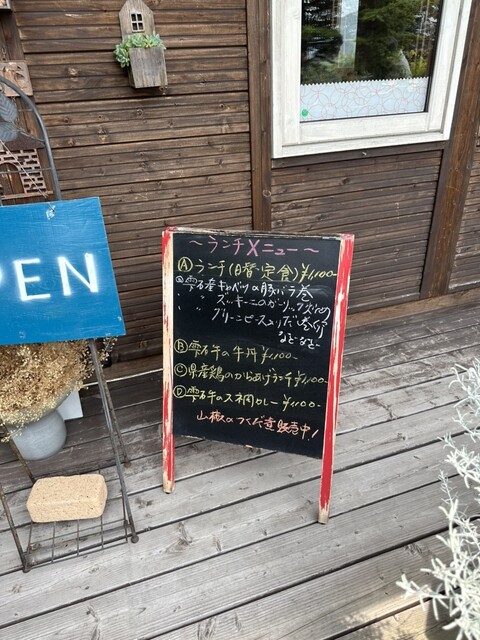 PEN
~ランチメニュー~
Ⓐランチ(日替定食)¥1100-
雫石産キャベツの豚バラ巻
〃 〃 ズッキーニのガーリック炒め
グリーンピース入りだし巻卵
などなど…
Ⓑ雫石牛の牛丼¥1100-
Ⓒ県産鶏のからあげランチ¥1100-
Ⓓ雫石牛のスネ肉カレー¥1100-
山椒のつくだ煮販売中!